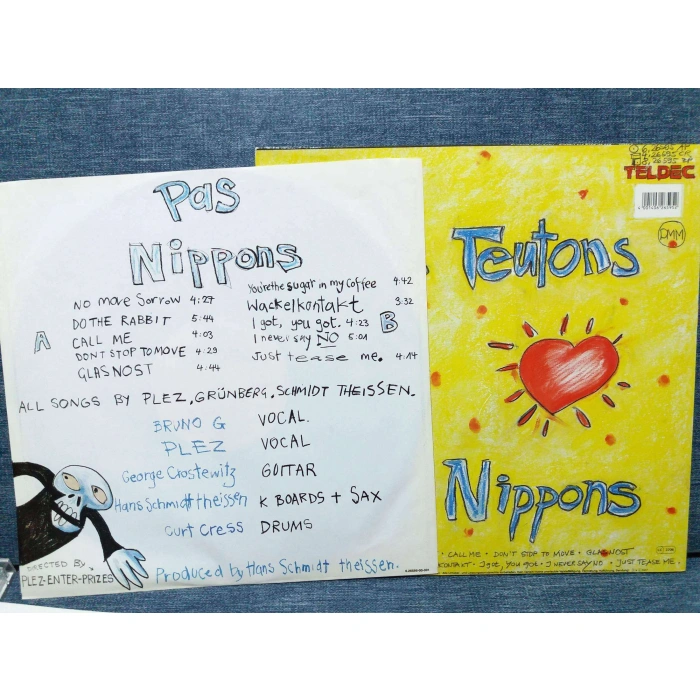 Pas
Nippons
A
No more Sorrow 4:27
DO THE RABBIT 5:44
CALL ME 4:03
DONT STOP TO MOVE 4:29
GLASNOST 4:44
B
You're the sugar in my Coffee 4:42
Wackelkontakt 3:32
I got, you got. 4:23
I never say NO 5:01
Just tease me. 4:14
ALL SONGS BY PLEZ, GRÜNBERG, SCHMIDT THEISSEN.
BRUNO G VOCAL.
PLEZ VOCAL
George Crostewitz GUITAR
Hans Schmidt theissen K BOARDS + SAX
Curt Cress DRUMS
DIRECTED BY
PLEZ-ENTER-PRIZES
Produced by Hans Schmidt theissen.
TELDEC
DMM
Teutons
Nippons
CALL ME • DON'T STOP TO MOVE • GLASNOST
KONTAKT • I got, you got • I NEVER SAY NO • JUST TEASE ME.